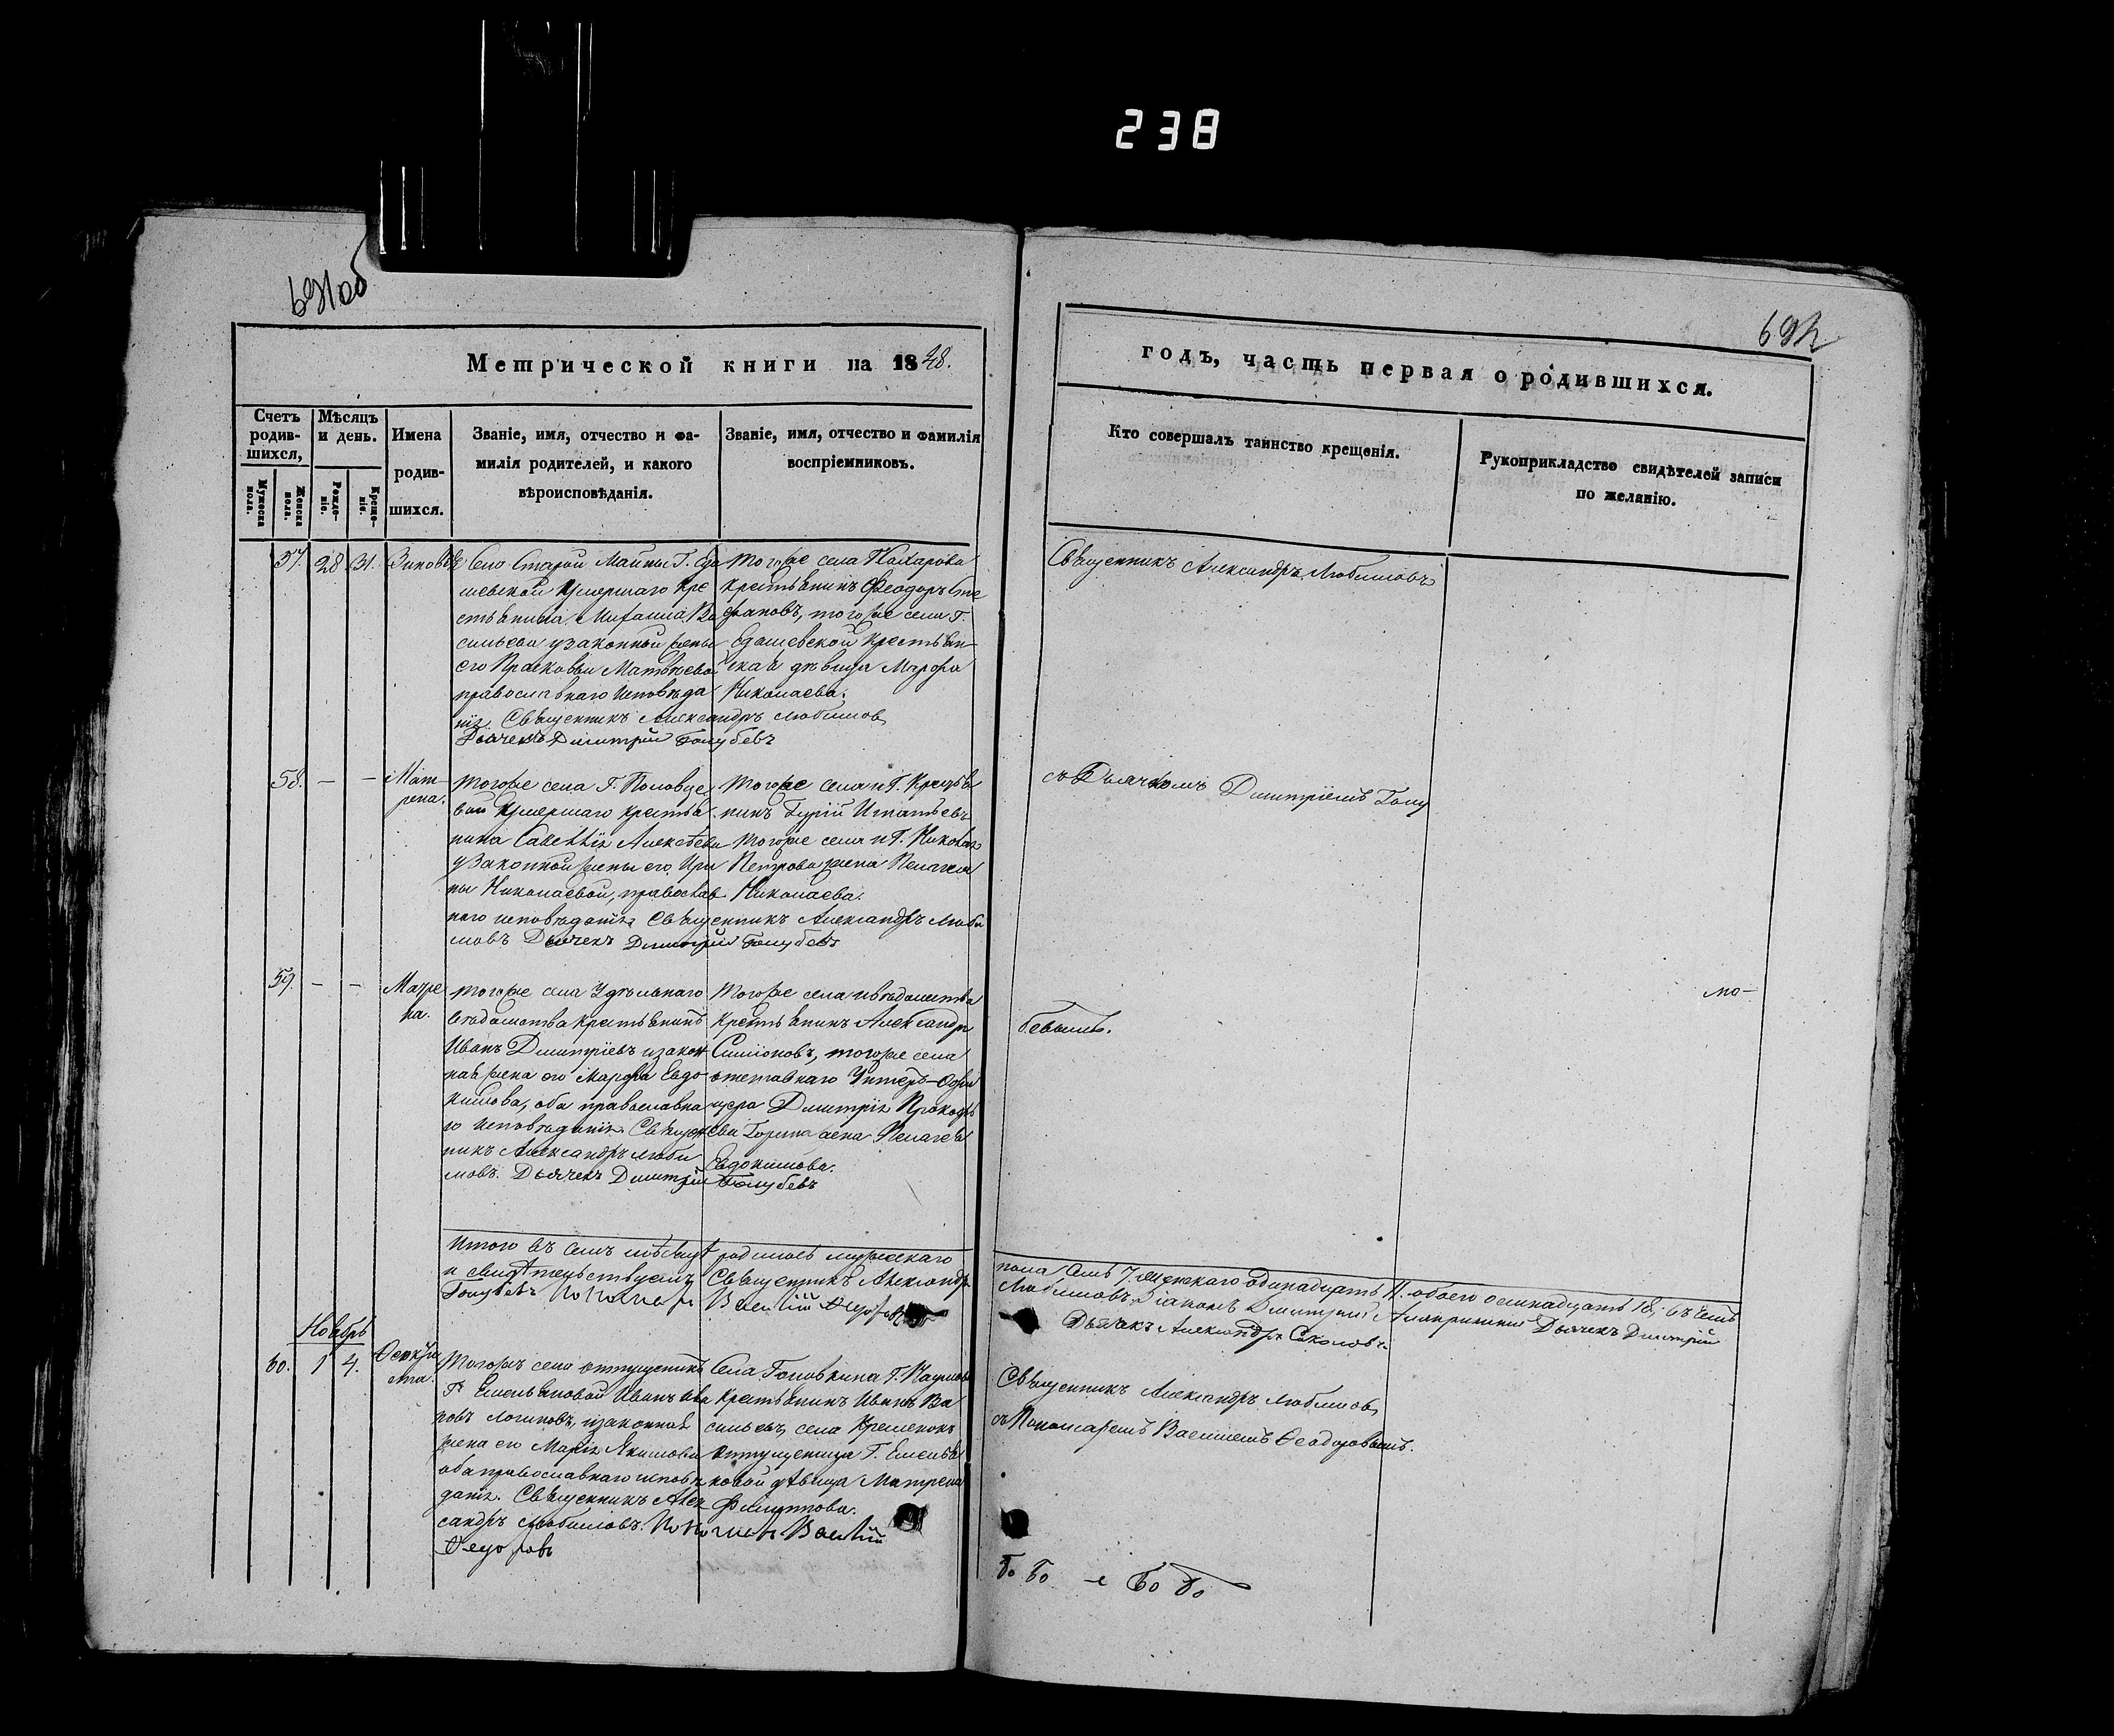 238
691об
692
Метрической книги на 1848.
годъ, часть первая о родившихся.
Счетъ родив-шихся,
Мужеска пола.
Женска пола.
Мѣсяцъ и день.
Рожде-ніе.
Креще-ніе.
Имена
родив-
шихся.
Званіе, имя, отчество и фа-
милія родителей, и какого
вѣроисповѣданія.
Званіе, имя, отчество и фамилія
воспріемниковъ.
Кто совершалъ таинство крещенія.
Рукоприкладство свидѣтелей записи
по желанію.
57. 28 31.
Села Старой Майны Г.
шевской умершаго кре
стьянина Василья
сильева узаконной жены
его Прасковьи Матвѣева
православнаго исповѣда
нія, Священникъ Александръ Любимов
Дьячекъ Димитрій Голубевъ
Тогоже села
крестьянинъ Феодоръ Сте
фановъ, тогоже села Г.
крестьян-
ская дѣвица Марфа
Николаева.
Священникъ Александръ Любимовъ
58. — —
Мат-
рена.
тогоже села Г.
вой умершаго крестья
нина Алексѣева
узаконной жены его Ири
ны Николаевой, православ
наго исповѣданія Священникъ Александръ Люби
мовъ Дьячекъ Димитрій Голубевъ
тогоже села и Г. крестья
нинъ Гурій Игнатьевъ
тогоже села и Г.
Петрова жена Пелагея
Николаева.
съ Дьячкомъ Димитріемъ Голу
59. — —
Матре
на.
тогоже села Удѣльнаго
вѣдомства крестьянинъ
Иванъ Дмитріевъ изакон
ная жена его Марфа Евдо
кимова, оба православна
го исповѣданія Священ
никъ Александръ Люби
мовъ. Дьячекъ Димитрій Голубевъ
Тогоже села ивѣдомства
крестьянинъ Александръ
Симіоновъ, тогоже села
отставнаго Унтеръ-Офи
цера Димитрія Прокофь
ева жена Пелагея
Евдокимова.
бевымъ.
Итого въ семъ мѣсяцѣ родилось мужескаго
пола семь 7, женскаго одинадцать 11. обоего осмнадцать 18, въ чемъ
и свидѣтельствуемъ Священникъ Александръ
Любимовъ, Діаконъ Димитрій Дьячекъ Димитрій
Голубевъ Пономарь Василій Федоровъ
Дьячекъ Александръ Соколовъ.
Ноябрь
60. 1 4.
Феокти
ста.
Тогожъ села отпущенникъ
Г. Емельяновой Иванъ Ива
новъ Логиновъ, изаконная
жена его Марія Якимова
оба православнаго исповѣ
данія. Священникъ Алек
сандръ Любимовъ. Пономарь Василій
Федоровъ
Села Головкина Г. Наумова
крестьянинъ Иванъ Ва
сильевъ, села Кременокъ
отпущенница Г. Емелья
новой дѣвица Матрена
Филиппова.
Священникъ Александръ Любимовъ,
съ Пономаремъ Василіемъ Феодоровымъ.